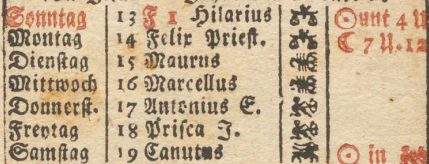 Sonntag 13 F 1 Hilarius ☉unt 4 U
Montag 14 Felix Priest. ☾ 7 U. 12
Dienstag 15 Maurus
Mittwoch 16 Marcellus
Donnerst. 17 Antonius E.
Freytag 18 Prisca J.
Samstag 19 Canutus ☉ in